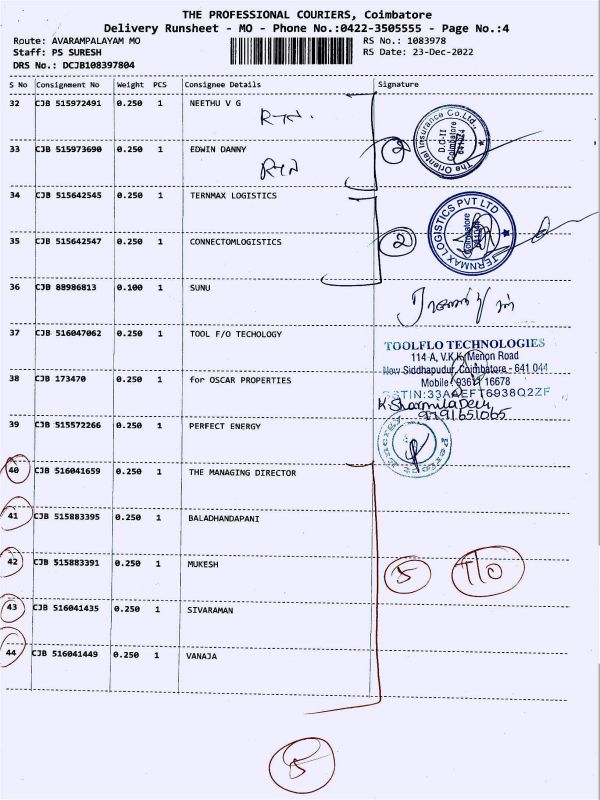 THE PROFESSIONAL COURIERS, Coimbatore
Delivery Runsheet - MO - Phone No.:0422-3505555 - Page No.:4
Route: AVARAMPALAYAM MO RS No.: 1083978
Staff: PS SURESH RS Date: 23-Dec-2022
DRS No.: DCJB108397804
S No Consignment No Weight PCS Consignee Details Signature
32 CJB 515972491 0.250 1 NEETHU V G
RTN.
33 CJB 515973690 0.250 1 EDWIN DANNY
RTN
2
The Oriental Insurance Co.Ltd.,
D.O-II
Coimbatore
34 CJB 515642545 0.250 1 TERNMAX LOGISTICS
35 CJB 515642547 0.250 1 CONNECTOMLOGISTICS
2
TERNMAX LOGISTICS PVT LTD
Coimbatore
36 CJB 88986813 0.100 1 SUNU
37 CJB 516047062 0.250 1 TOOL F/O TECHOLOGY
TOOLFLO TECHNOLOGIES
114-A, V.K.K. Menon Road
New Siddhapudur, Coimbatore - 641 044
Mobile: 93611 16678
GSTIN:33AAEFT6938Q2ZF
38 CJB 173470 0.250 1 for OSCAR PROPERTIES
K. Sharmila Devi
9791651065
39 CJB 515572266 0.250 1 PERFECT ENERGY
Perfect Energy
40 CJB 516041659 0.250 1 THE MANAGING DIRECTOR
41 CJB 515883395 0.250 1 BALADHANDAPANI
42 CJB 515883391 0.250 1 MUKESH
5 T/O
43 CJB 516041435 0.250 1 SIVARAMAN
44 CJB 516041449 0.250 1 VANAJA
5